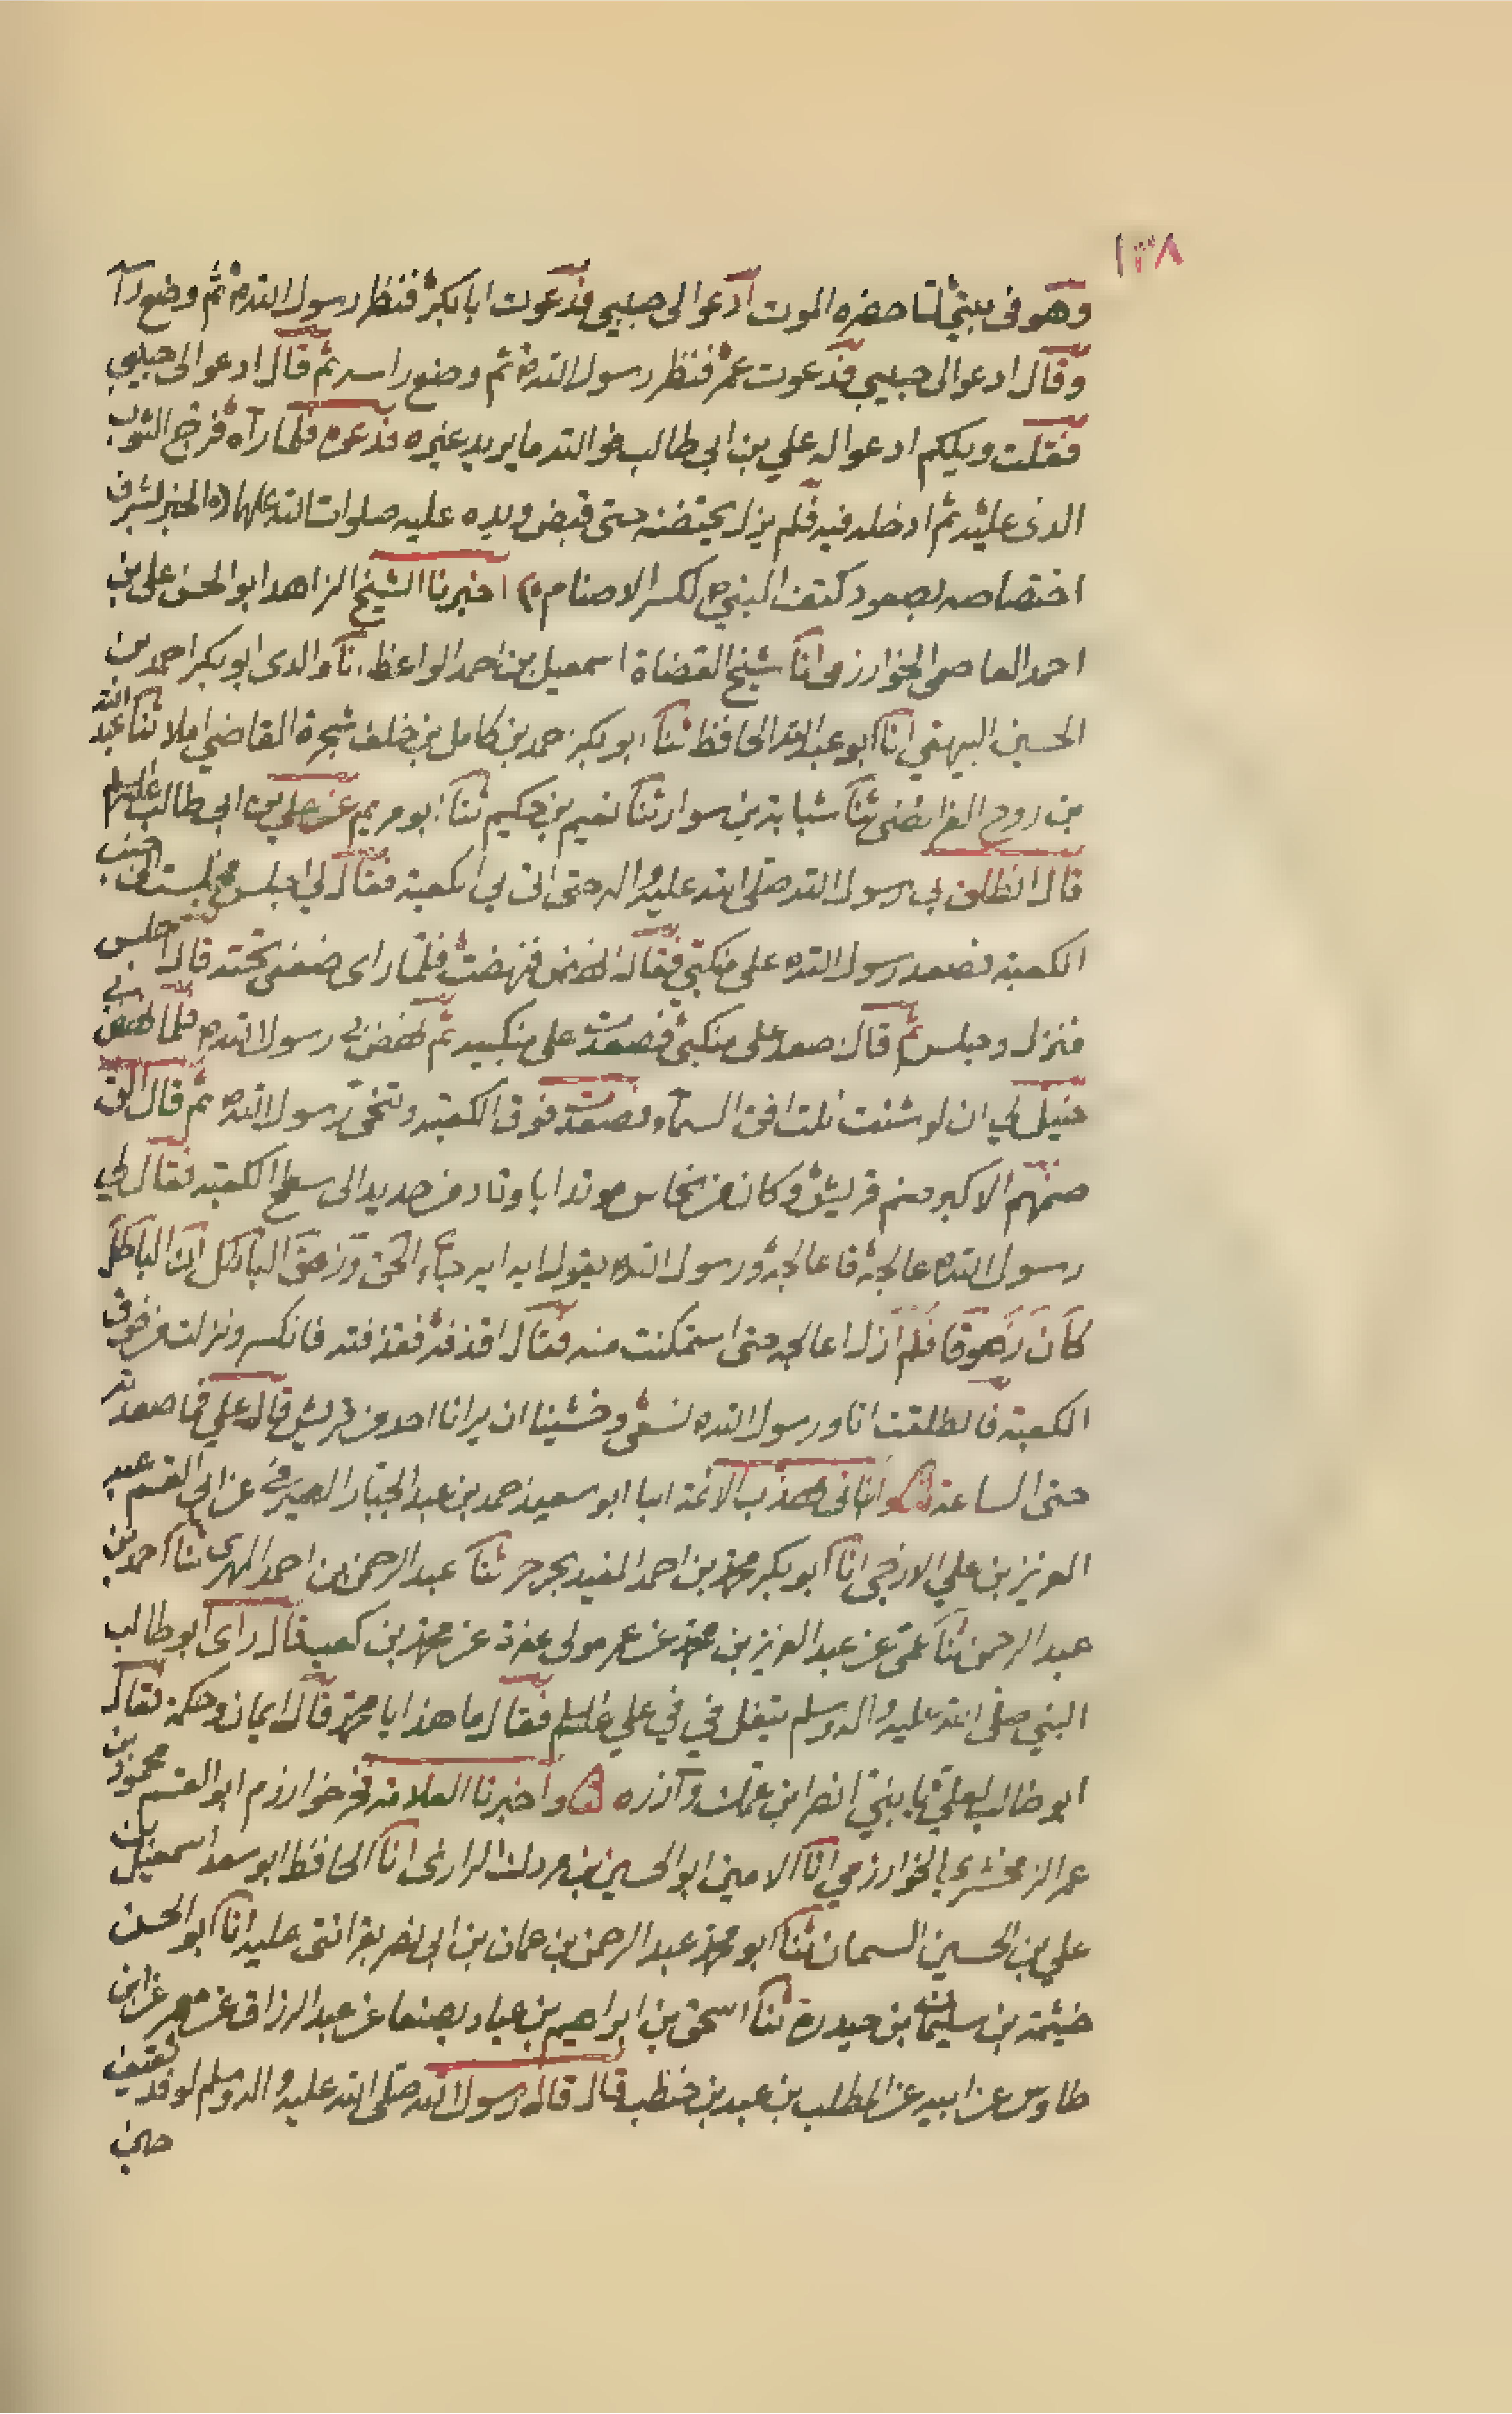 ١٣٨
وهو في بيتي لما حضره الموت ادعوا لي حبيبي فدعوت ابا بكر فنظر رسول الله ثم وضع را
وقال ادعوا لي حبيبي فدعوت عمر فنظر رسول الله ثم وضع راسه ثم قال ادعوا لي حبيبي
فقلت ويلكم ادعوا له علي بن ابي طالب فوالله ما يريد غيره فدعوه فلما رآه فرج الثوب
الذي عليه ثم ادخله فيه فلم يزل يحتضنه حتى قبض ويده عليه صلوات الله عليهما
اختصاصه بصعود كتف النبي لكسر الاصنام اخبرنا الشيخ الزاهد ابو الحسن علي بن
احمد العاصمي الخوارزمي انا شيخ القضاة اسمعيل بن احمد الواعظ انا والدي ابو بكر احمد بن
الحسين البيهقي انا ابو عبد الله الحافظ ثنا ابو بكر احمد بن كامل بن خلف شجرة القاضي املا ثنا عبد الله
بن روح الفرائضي ثنا شبابة بن سوار ثنا نعيم بن حكيم ثنا ابو مريم عن علي بن ابي طالب عليه السلم
قال انطلق بي رسول الله صلى الله عليه واله حتى اتى بي الكعبة فقال لي اجلس فجلست الى جنب
الكعبة فصعد رسول الله على منكبي فقال انهض فنهضت فلما راى ضعفي تحته قال اجلس
فنزل وجلس ثم قال اصعد على منكبي فصعدت على منكبيه ثم نهض بي رسول الله فلما نهض بي
خيل لي ان لو شئت نلت افق السمآء فصعدت فوق الكعبة وتنحى رسول الله ثم قال الق
صنمهم الاكبر صنم قريش وكان من نحاس موتدا باوتاد من حديد الى سطح الكعبة فقال لي
رسول الله عالجه فعالجته ورسول الله يقول ايه ايه جاء الحق وزهق الباطل ان الباطل
كان زهوقا فلم ازل اعالجه حتى استمكنت منه فقال اقذفه فقذفته فانكسر ونزلت من فوق
الكعبة فانطلقت انا ورسول الله نسعى وخشينا ان يرانا احد من قريش قال علي فما صعدته
حتى الساعة وانباني مهذب الائمة انبا ابو سعيد احمد بن عبد الجبار الصيرفي عن ابي القسم عبد
العزيز بن علي الازجي انا ابو بكر محمد بن احمد المفيد بجرجر ثنا عبد الرحمن بن احمد المهري ثنا احمد بن
عبد الرحمن ثنا عمي عن عبد العزيز بن محمد عن عمر مولى عفرة عن محمد بن كعب قال راى ابو طالب
النبي صلى الله عليه واله وسلم يتفل في في علي عليه السلم فقال ما هذا يا محمد قال ايمان وحكمة فقال
ابو طالب لعلي يا بني انصر ابن عمك وآزره واخبرنا العلامة فخر خوارزم ابو القسم محمود بن
عمر الزمخشري الخوارزمي انا الامين ابو الحسين بن مردك الرازي انا الحافظ ابو سعد اسمعيل بن
علي بن الحسين السمان ثنا ابو محمد عبد الرحمن بن عثمان بن ابي نصر بقرائتي عليه انا ابو الحسن
خيثمة بن سليمان بن حيدرة ثنا اسحق بن ابراهيم بن عباد بصنعا عن عبد الرزاق عن معمر عن ابن
طاوس عن ابيه عن المطلب بن عبد بن حنطب قال قال رسول الله صلى الله عليه واله وسلم لوفد ثقيف
حين